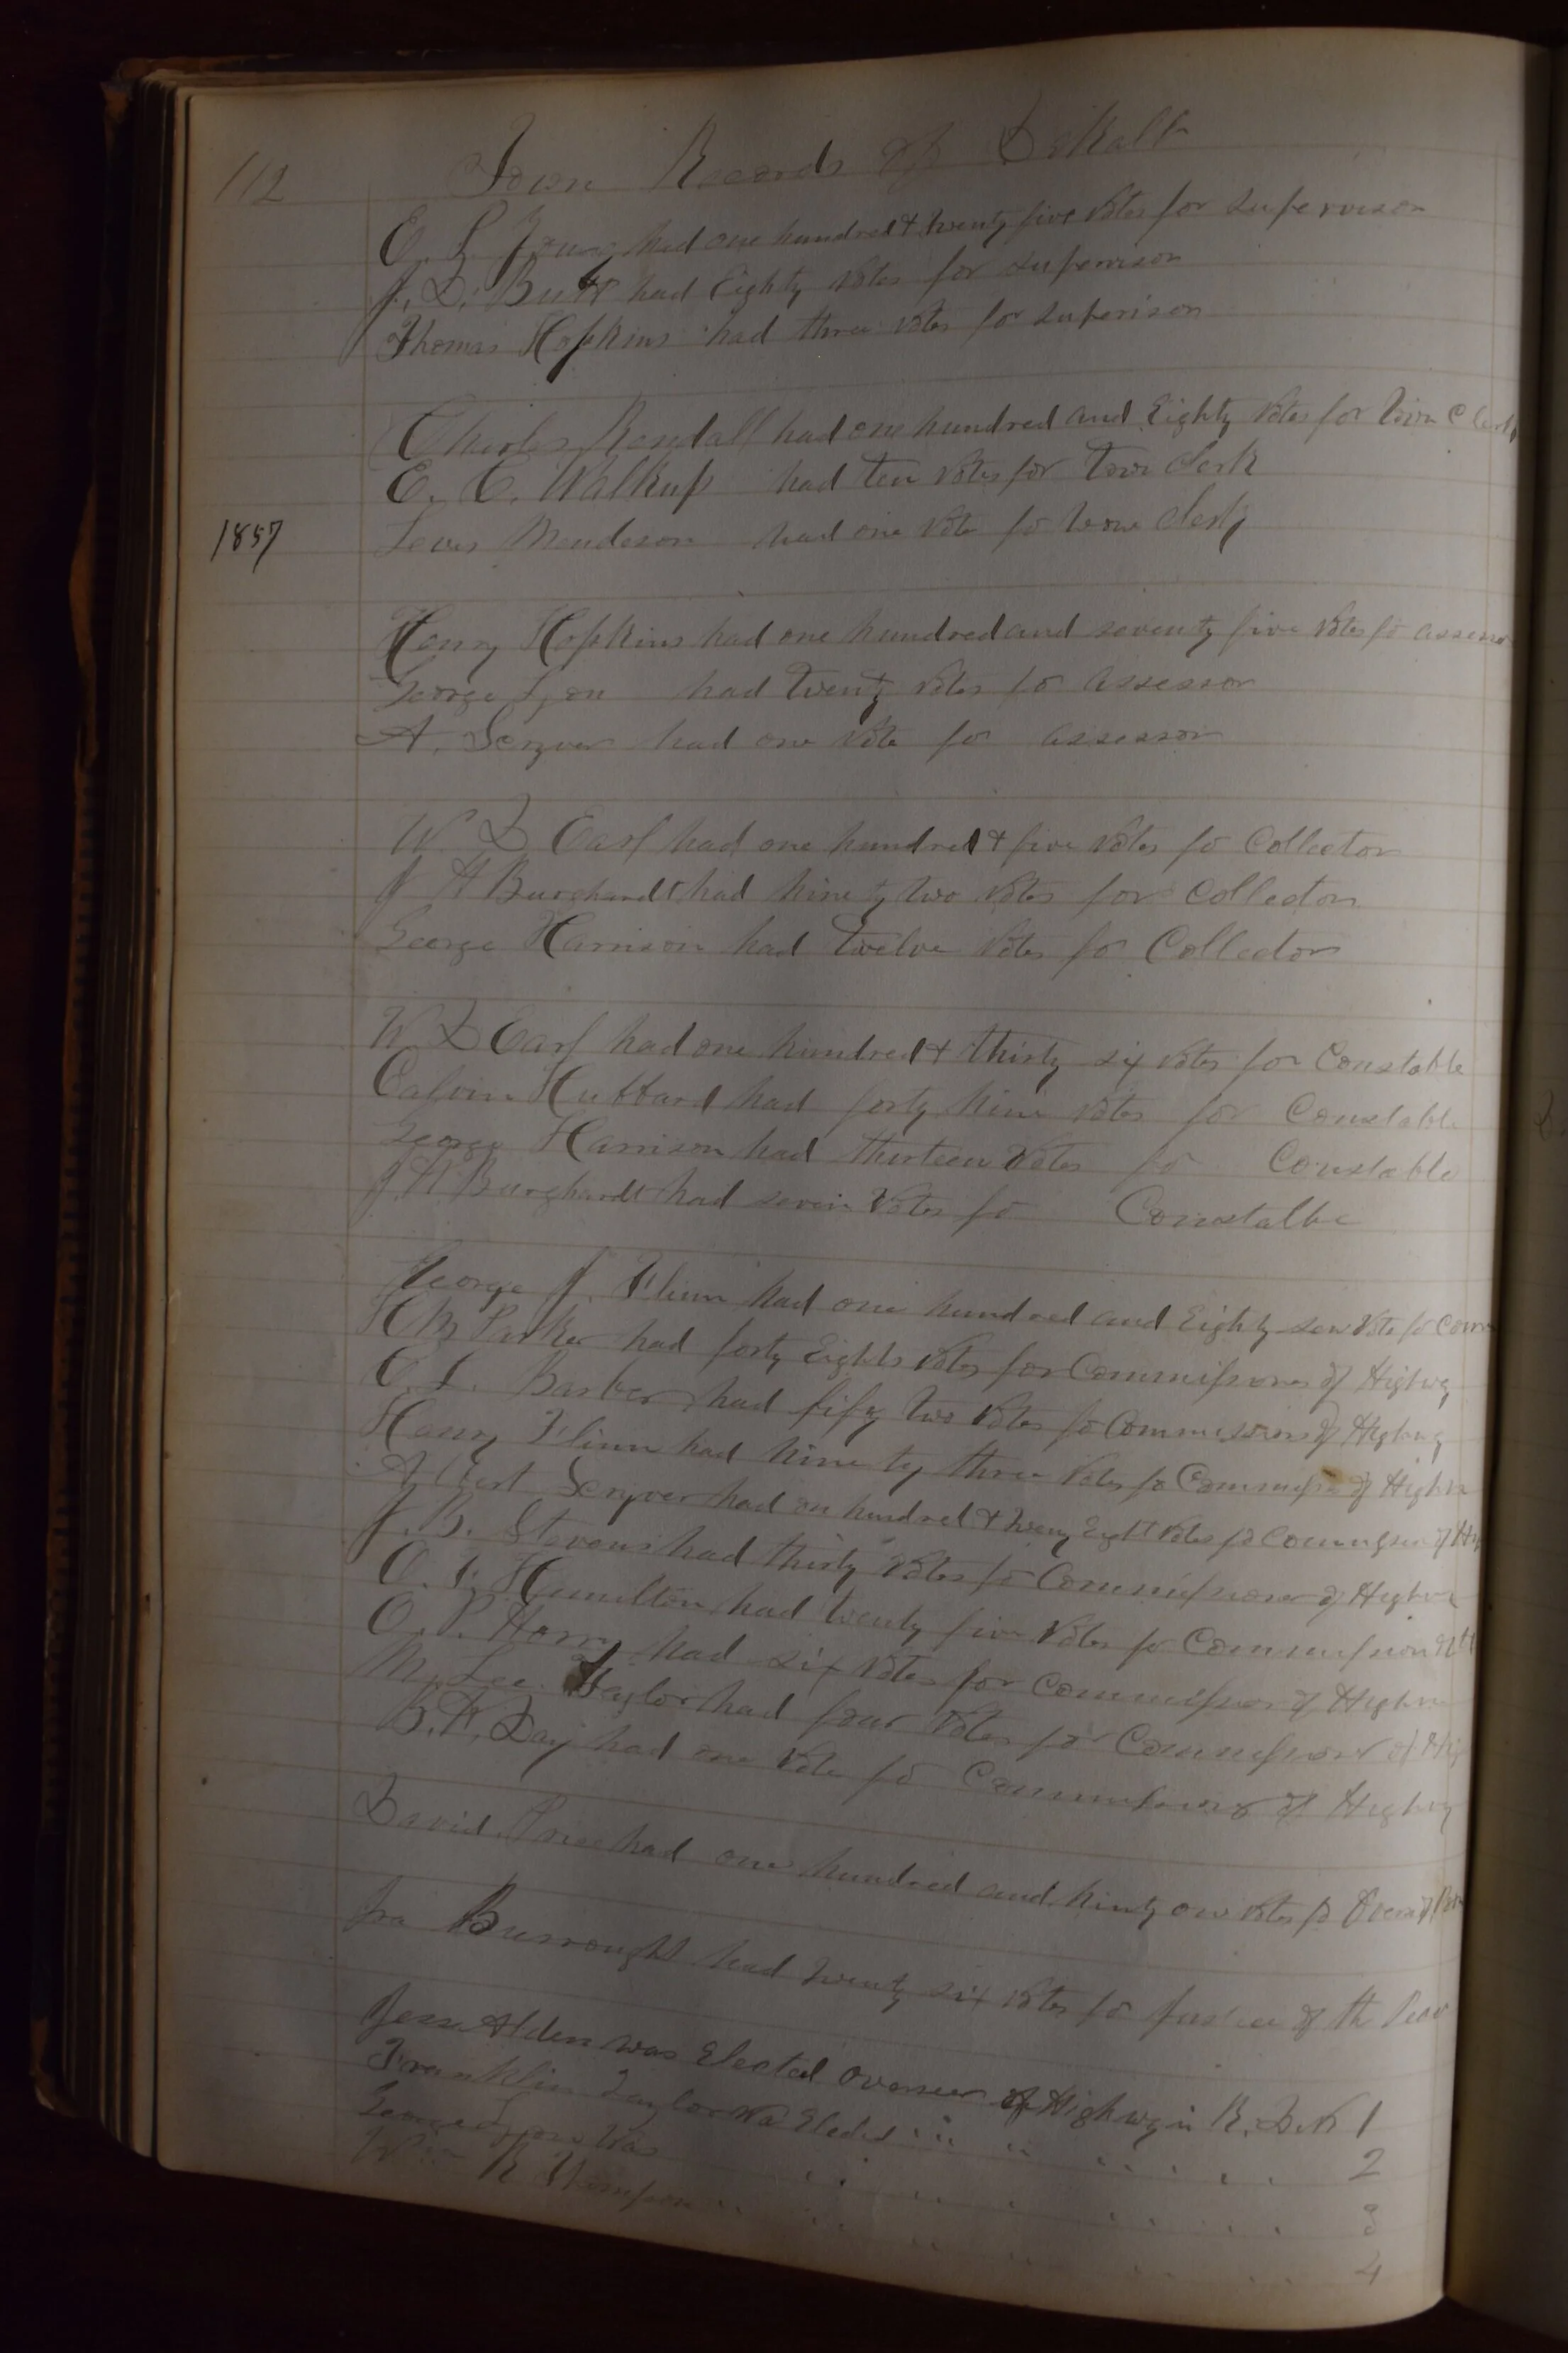 112 Town Records of DeKalb
E. L. Young had one hundred & twenty five votes for supervisor
J. D. Butt had Eighty votes for supervisor
Thomas Hopkins had three votes for superisor
Charles Rendall had one hundred and Eighty votes for Town Clerk
E. C. Walkup had ten votes for Town Clerk
1857 Lewis Mendeson had one vote fo town Clerk
Henry Hopkins had one hundred and seventy five votes fo assessor
George Lyon had Twenty votes fo assessor
A. Scryver had one vote for assessor
W D Earl had one hundred & five votes fo Collector
J H Burghardt had ninety two votes for Collector
George Harrison had Twelve votes fo Collector
W D Earl had one hundred & thirty six votes for Constable
Calvin Hubbard had forty nine votes for Constable
George Harrison had thirteen votes fo Constable
J. H Burghardt had seven votes fo Constalbe
George J. Flinn had one hundred and Eighty votes fo Com
H M Parker had forty Eight votes for Commissioner of Highwy
O. L. Barber had fifty two votes fo Commissioner of Highwy
Henry Flinn had ninety three votes fo Commissioner of Highw
Albert Scryver had on hundred & twenty Eight votes fo Commissioner of
J. B. Stevens had thirty votes fo Commissioner of Highw
O. Hamilton had twenty five votes fo Commission
O. P. Harry had six votes for Commissioner of Highw
M. Lee Taylor had four votes fo Commissioner of Hig
B. F. Day had one vote fo Commissioner of Highwy
David had one hundred and ninty one votes fo Overs of Poo
Ira Burroughs had twenty six votes fo Justice of the Peace
Jesse Alden was Elected Overseer of Highwy in R. D. No 1
Franklin Taylor was Elected " " " " " " 2
George Lyons was " " " " " " 3
Wm R Thompson " " " " " " 4